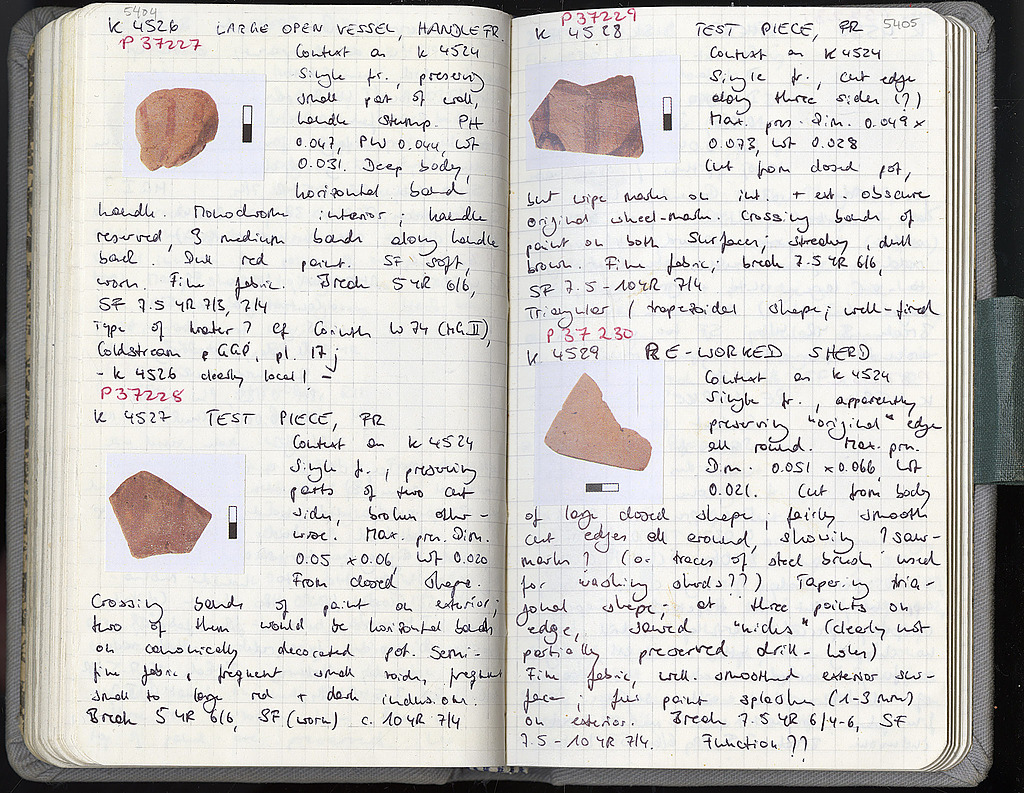 5404
K 4526 LARGE OPEN VESSEL, HANDLE FR.
P 37227
Context as K 4524
Single fr., preserving
small part of wall,
handle stump. PH
0.047, PW 0.044, WT
0.031. Deep body,
horizontal band
handle. Monochrome interior; handle
reserved, 3 medium bands along handle
back. Dull red paint. SF soft,
worn. Fine fabric. Break 5 YR 6/6,
SF 7.5 YR 7/3, 7/4
Type of krater? Cf Corinth W 74 (MG II),
Coldstream, GGP, pl. 17;
- K 4526 clearly local! -
P 37228
K 4527 TEST PIECE, FR
Context as K 4524
Single fr., preserving
parts of two cut
sides, broken other-
wise. Max. pres. Dim.
0.05 x 0.06, WT 0.020
From closed shape.
Crossing bands of paint on exterior;
two of them would be horizontal bands
on canonically decorated pot. Semi-
fine fabric, frequent small voids, frequent
small to large red + dark inclusions.
Break 5 YR 6/6, SF (worn) c. 10 YR 7/4
5405
P 37229
K 4528 TEST PIECE, FR
Context as K 4524
Single fr., cut edge
along three sides (?)
Max. pres. Dim. 0.049 x
0.073, WT 0.028
Cut from closed pot,
but wipe marks on int. + ext. obscure
original wheel-marks. Crossing bands of
paint on both surfaces; streaky, dull
brown. Fine fabric; break 7.5 YR 6/6,
SF 7.5 - 10 YR 7/4
Triangular / trapezoidal shape; well-fired
P 37230
K 4529 RE-WORKED SHERD
Context as K 4524
Single fr., apparently
preserving "original" edge
all round. Max. pres.
Dim. 0.051 x 0.066, WT
0.021. Cut from body
of large closed shape; fairly smooth
cut edges all around, showing ? saw-
marks? (or traces of steel brush used
for washing sherds??) Tapering tria-
gonal shape; at three points on
edge, sawed "nicks" (clearly not
partially preserved drill-holes)
Fine fabric, well smoothed exterior sur-
face; few paint splashes (1-3 mm)
on exterior. Break 7.5 YR 6/4-6, SF
7.5 - 10 YR 7/4. Function??